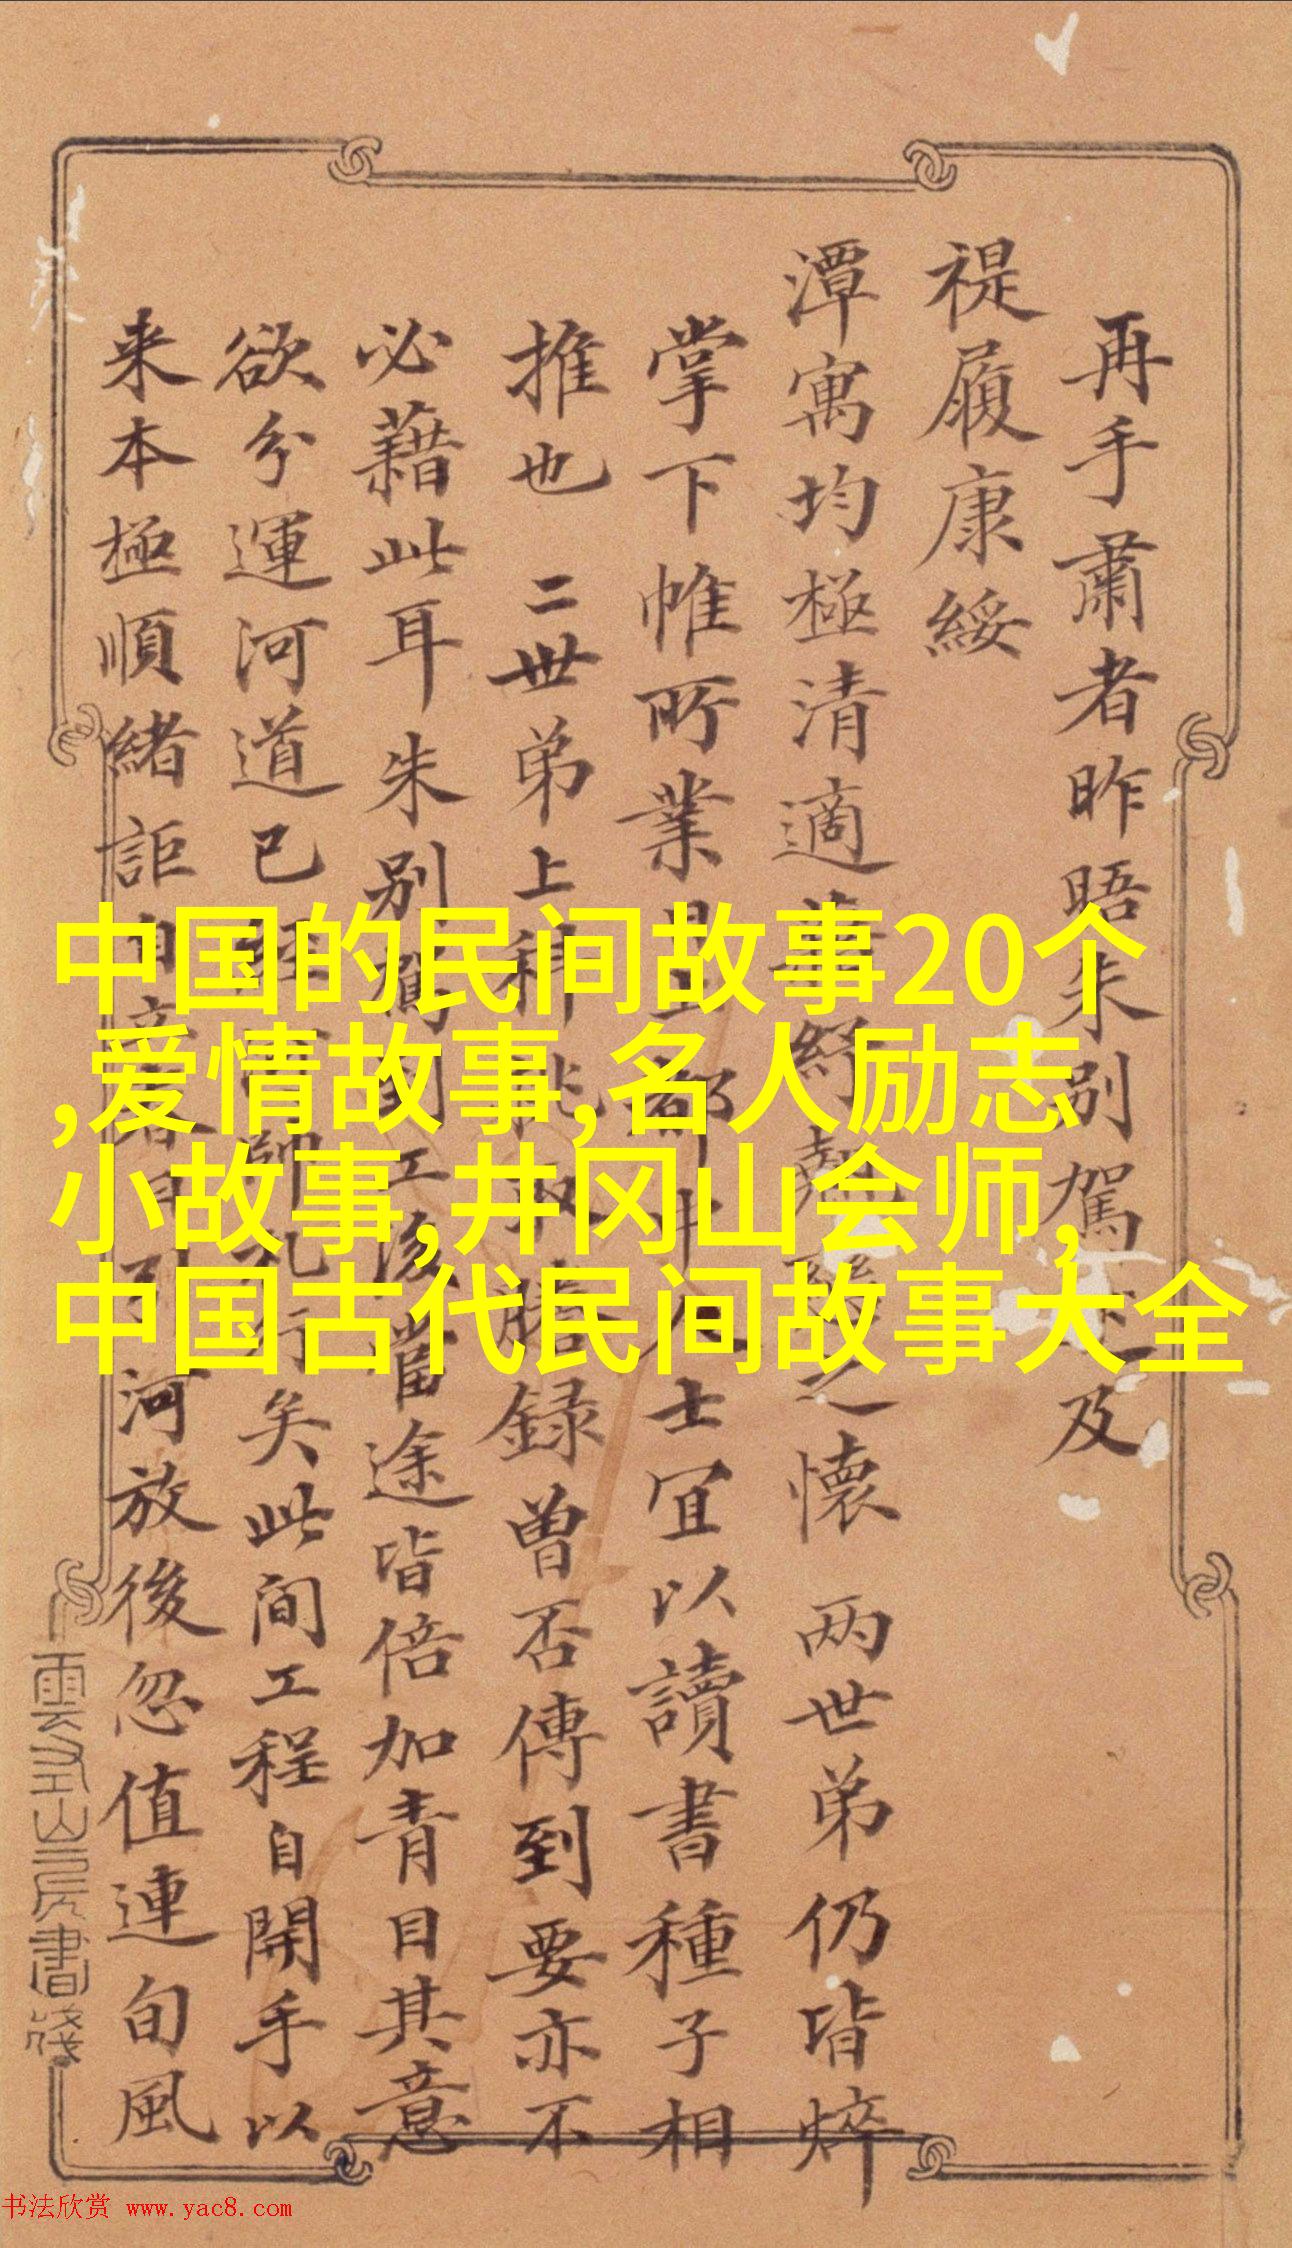 再手肅者昨晤朱別駕 及
禔履康綏
潭寓均極清適 之懷 两世弟仍皆焠
掌下帷所業 士宜以讀書種子相
推也 二世弟上科 謄録曾否傳到要亦不
必藉此耳朱别駕 工後當途皆倍加青目其意
欲兮運河道已經 行矣此间工程自開手以
来本極順緒詎 河放後忽值連旬風
雲 山房書箋
中国的民间故事20个
,爱情故事,名人励志
小故事,井冈山会师,
中国古代民间故事大全
书法欣赏 www.yac8.com